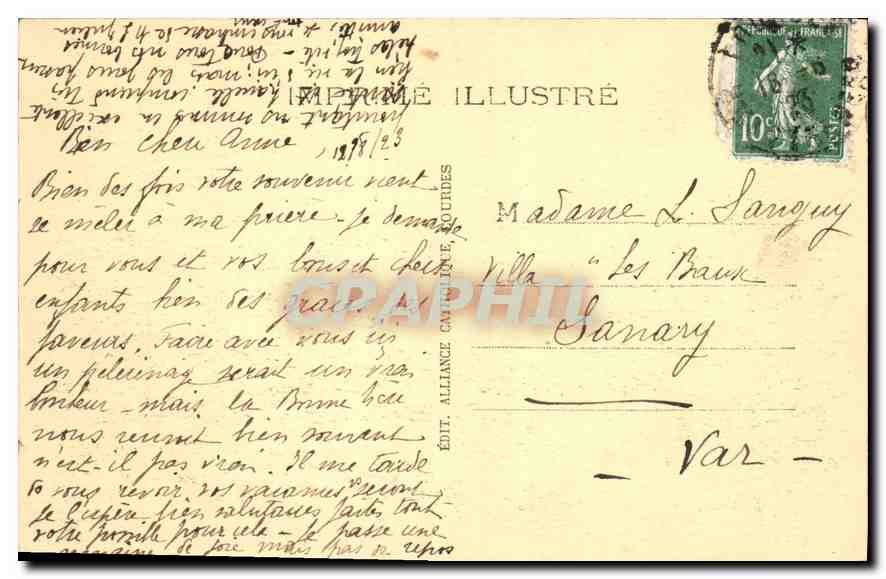 IMPRIMÉ ILLUSTRÉ
Bien chère Anne
12/8/23
Bien des fois votre souvenir vient
se mêler à ma prière - je demande
pour vous et vos bons et chers
enfants bien des graces, des
faveurs. Faire avec vous un
un pélerinage serait un vrai
bonheur - mais la Bonne Mère
nous réunit bien souvent
n'est-il pas vrai. Il me tarde
de vous revoir. vos vacances seront
je l'espère bien salutaires faites tout
votre possible pour cela - Je passe une
semaine de joie mais pas de repos
pourtant nous sommes en excellente
ÉDIT. ALLIANCE CATHOLIQUE, LOURDES
Madame L. Sanguy
Villa "Les Baux
Sanary
- Var -
REPUBLIQUE FRANÇAISE
10c
POSTES
CPAPHIL